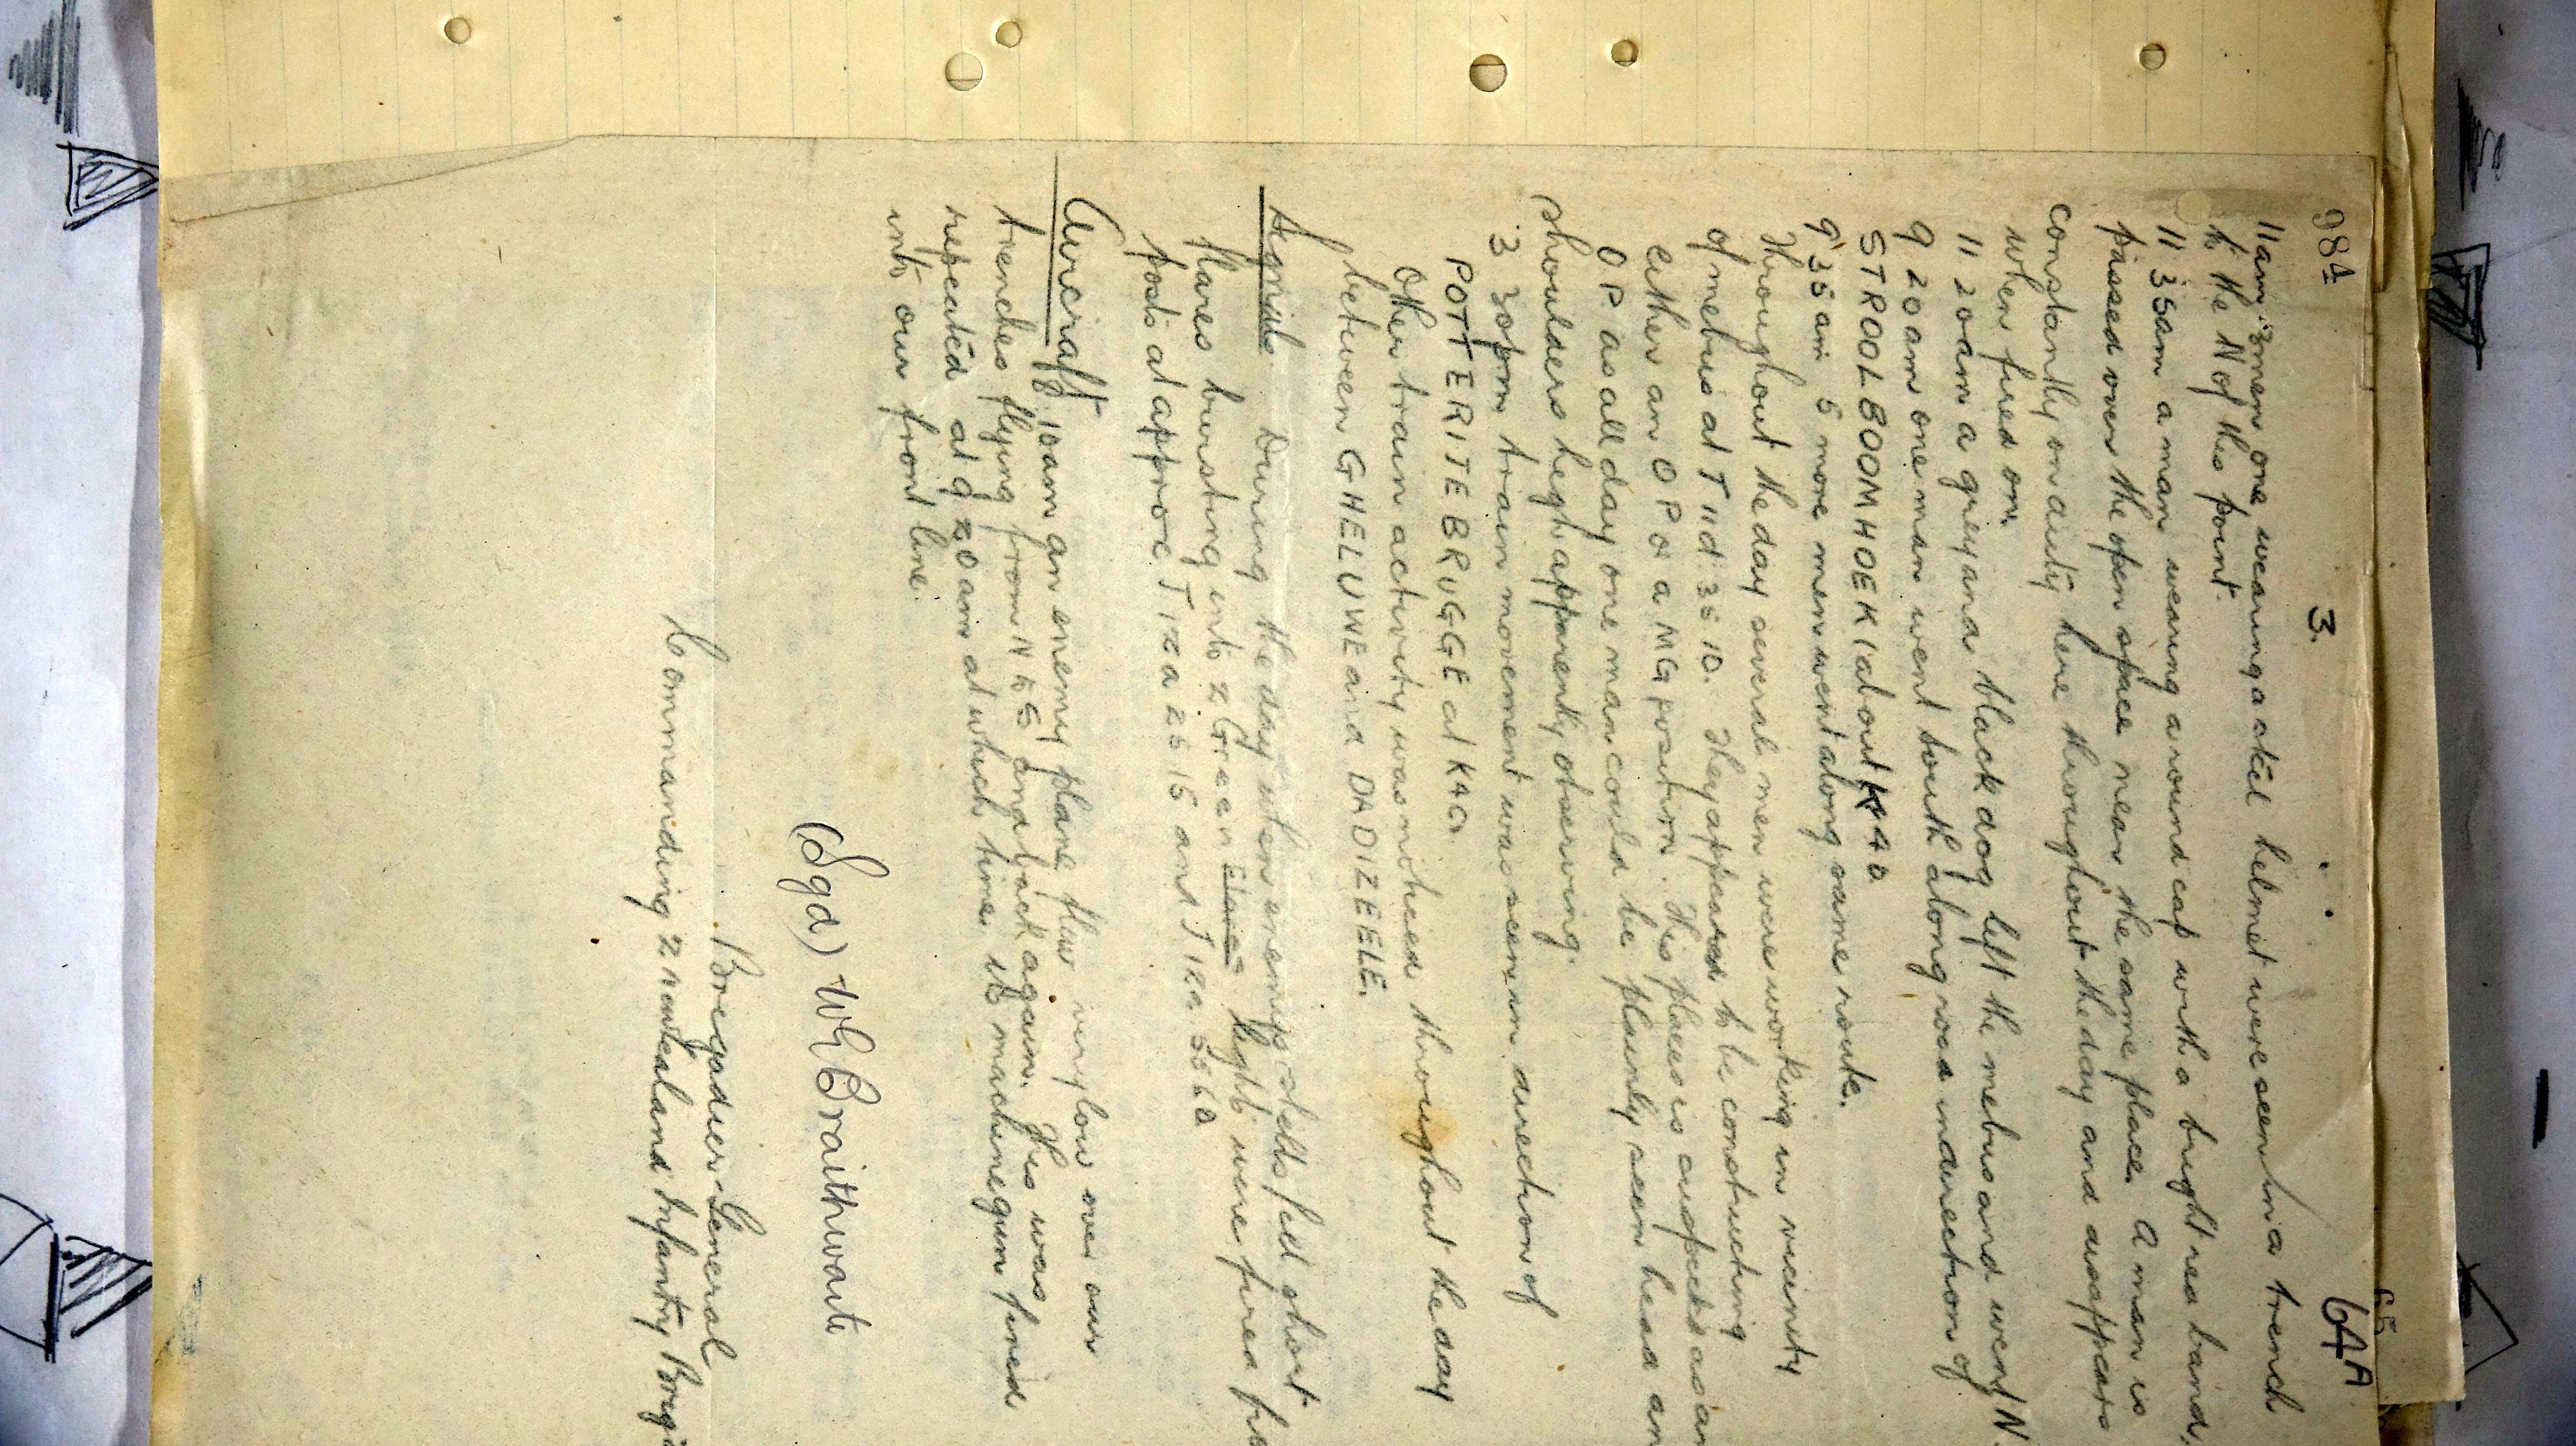 984
3.
65
64A
11am 3 men one wearing a steel helmet were seen in a trench
to the N of this point.
11 35am a man wearing a round cap with a bright red band,
passed over the open space near the same place. A man is
constantly on duty here throughout the day and disappears
when fired on.
11 20am a grey and black dog left the mebus and went N.
9 20am one man went south along road in direction of
STROOLBOOMHOEK (about K4a
9 35am 5 more men went along same route.
Throughout the day several men were working in vicinity
of mebus at J 11d 35 10. They appeared to be constructing
either an O P or a MG position. This place is suspected as an
O P as all day one man could be plainly seen head an
shoulders high apparently observing.
3 30pm train movement was seen in direction of
POTTERITEBRUGGE at K4a
Other train activity was noticed throughout the day
between GHELUWE and DADIZEELE.
Signals. During the day when enemys shells fell short
flares bursting into 2 Green lights were fired fro
posts at approx J 12a 25 15 and J 12a 55 60
Aircraft 8.10am an enemy plane flew very low over our
trenches flying from N to S and back again. This was
repeated at 9 20am at which time its machinegun fired
into our front line.
(Sgd) W G Braithwaite
Brigadier-General
Commanding 2 Newzealand Infantry Briga